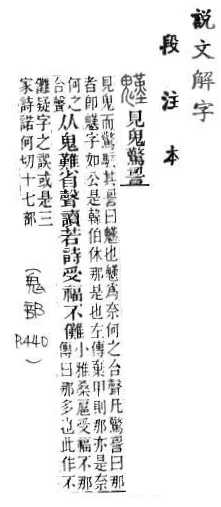 說文解字
段注本
見鬼驚䛐
見鬼而驚駭其䛐曰也爲奈何之合聲凡驚䛐曰那
者卽字如公是韓伯休那是也左傳棄甲則那亦是奈
何之
合聲
从鬼難省聲讀若詩受福不儺
小雅桑扈受福不那
傳曰那多也此作不
儺疑字之誤或是三
家詩諾何切十七部
(鬼部
P.440)